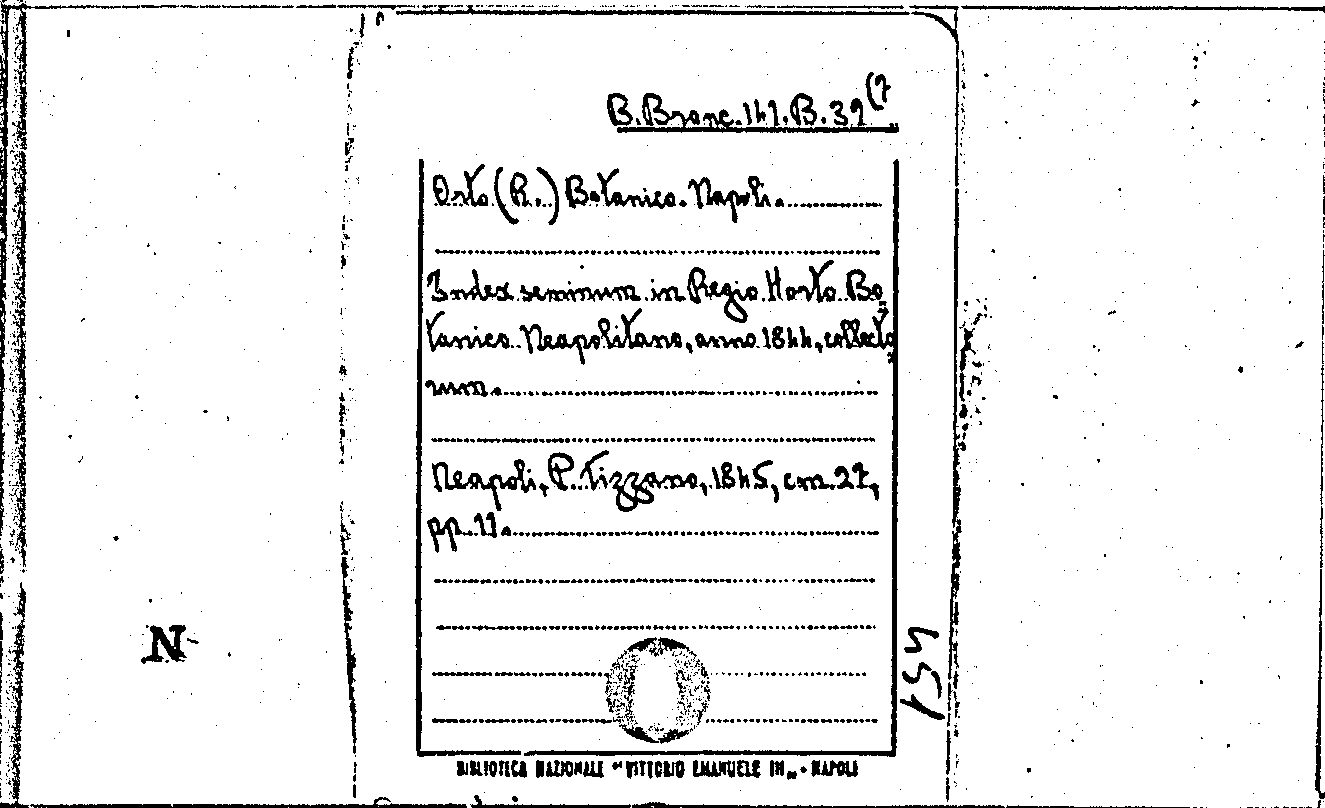 B. Branc. 141. B. 39 (7
Orto (R.) Botanico. Napoli.
Index seminum in Regio Horto Bo=
tanico Neapolitano, anno 1844, collecto=
rum.
Neapoli, P. Tizzano, 1845, cm. 27,
pp. 11.
N
BIBLIOTECA NAZIONALE "VITTORIO EMANUELE III" - NAPOLI